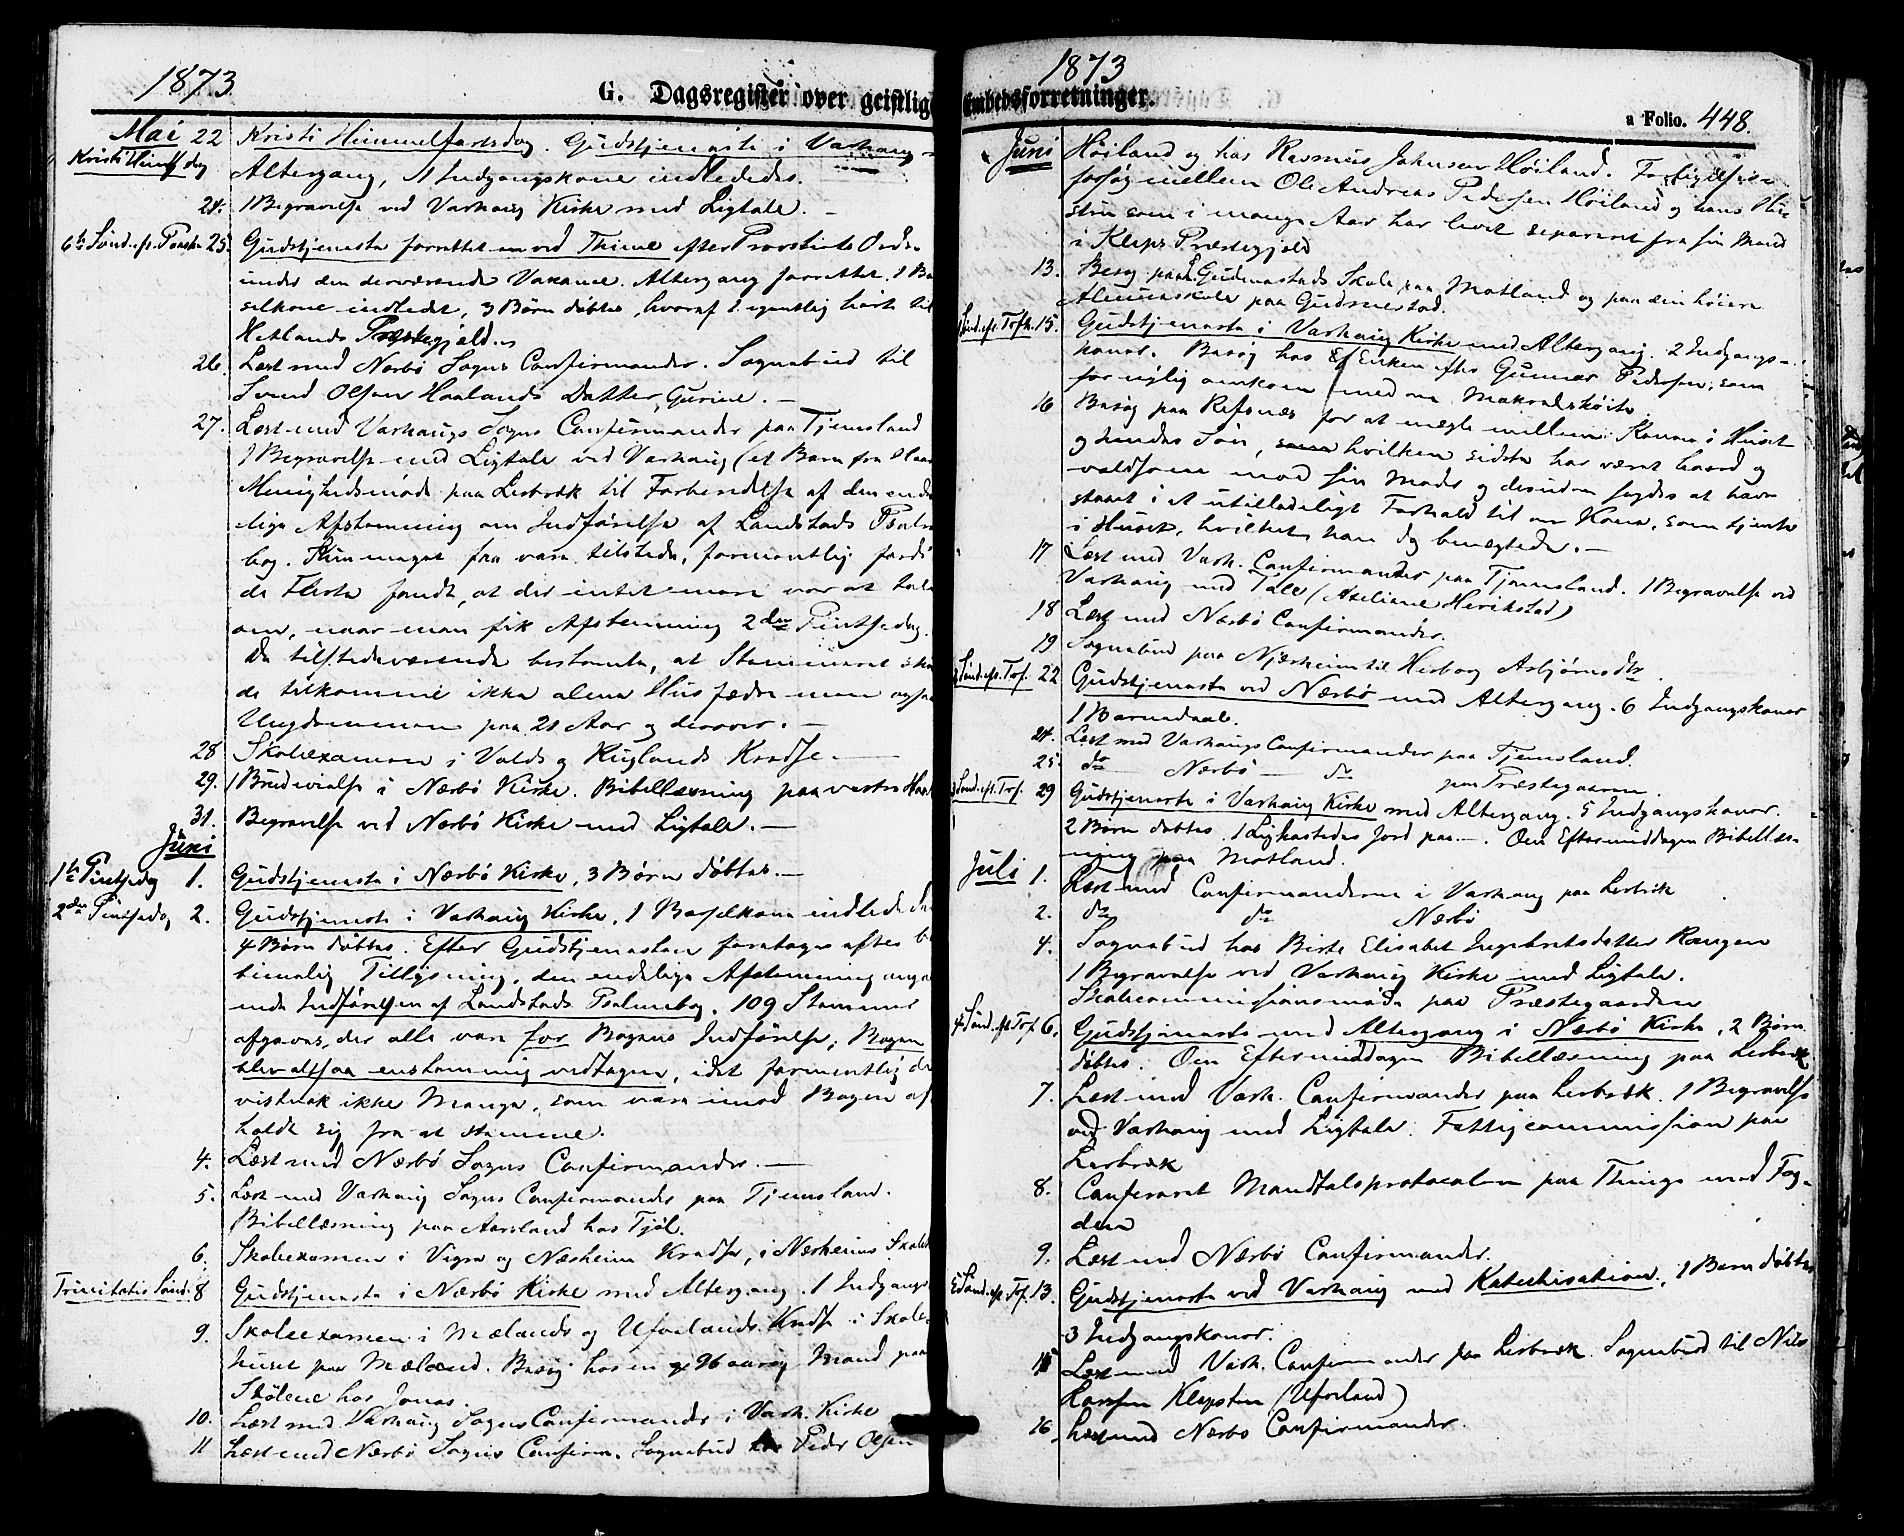 1873
G. Dagsregister over geistlig
Mai 22 Kristi Himmelfartsdag. Gudstjeneste i Varhaug
Kristi Himmf dag Altergang, 1 Indgangskone indlededes.
24. 1 Begravelse ved Varhaug Kirke med Ligtale. –
6te Sønd. ef. Paaske 25. Gudstjeneste forrettet ved Thime efter Provstiets Ordre
under den derværende Vakance. Altergang forrettet. 1 Ba
selkone indledet, 3 Børn døbtes, hvoraf 1 egentlig hørte til
Hetlands Præstegjeld.
26. Læst med Nærbø Sogns Confirmander. Sognebud til
Svend Olsen Haalands Datter, Gurine. –
27. Læst med Varhaugs Sogns Confirmander paa Tjemsland
1 Begravelse med Ligtale ved Varhaug (et Barn fra Haar
Menighedsmøde paa Lerbræk til Forberedelse af den ende
lige Afstemning om Indførelse af Landstads Psalme
bog. Kun meget faa vare tilstede, formentlig fordi
de Fleste fandt, at der intet mere var at tale
om, naar man fik Afstemning 2den Pintsedag.
De tilstedeværende bestemte, at Stemmeret skul
de tilkomme ikke alene Husfædre men ogsaa
Ungdommen paa 21 Aar og derover. –
28 Skoleexamen i Valds og Kuglands Kredse. –
29. 1 Brudevielse i Nærbø Kirke. Bibellæsning paa vestre Haa
31. Begravelse ved Nærbø Kirke med Ligtale. –
Juni
1te Pintsedag 1. Gudstjeneste i Nærbø Kirke, 3 Børn døbtes. –
2den Pintsedag 2. Gudstjeneste i Varhaug Kirke. 1 Barselkone indledede
4 Børn døbtes. Efter Gudstjenesten foretoges efter be
timelig Tillysning, den endelige Afstemning angaa
ende Indførelsen af Landstads Psalmebog. 109 Stemmer
afgaves, der alle vare for Bogens Indførelse; Bogen
blev altsaa enstemmig vedtagen, idet formentlig de
vistnok ikke Mange, som vare imod Bogen af
holdt sig fra at stemme.
4. Læst med Nærbø Sogns Confirmander. –
5. Læst med Varhaug Sogns Confirmander paa Tjemsland.
Bibellæsning paa Aarsland hos Tjøl.
6. Skoleexamen i Vigre og Næsheim Kredse, i Nærheims Skoleh
Trinitatis Sønd. 8 Gudstjeneste i Nærbø Kirke med Altergang. 1 Indgangs
9. Skoleexamen i Mælands og Ueselands Kreds i Skole
huset paa Mæland. Besøg hos en 96 aarig Mand paa
Skølene hos Jonas.
10. Læst med Varhaug Sogns Confirmander i Varh. Kirke
11 Læst med Nærbø Sogns Confirm. Sognebud hos Peder Olsen
1873
Embedsforretninger.
a Folio. 448.
Juni Høiland og hos Rasmus Johnsen Høiland. Forligelses-
forsøg mellem Ole Andreas Pedersen Høiland og hans Hu-
stru som i mange Aar har levet separeret fra sin Mand
i Kleps Præstegjeld
13. Besøg paa Gudmestads Skole, paa Motland og paa den høiere
Almueskole paa Gudmestad.
Sønd. ef. Tref. 15. Gudstjeneste i Varhaug Kirke med Altergang. 2 Indgangs-
koner. Besøg hos Enken efter Gunnar Pedersen, som
for nylig omkom med en Makrelskøite.
16 Besøg paa Refsnes for at mægle mellem Konen i Huset
og hendes Søn, som hvilken sidste har været haard og
voldsom mod sin Moder og desuden sagdes at have
staaet i et utilladeligt Forhold til en Kone, som tjente
i Huset, hvilket han dog benægtede. –
17 Læst med Varh. Confirmander paa Tjemsland. 1 Begravelse ved
Varhaug med Tale (Axeliane Herikstad)
18 Læst med Nærbø Confirmander.
19 Sognebud paa Njærheim til Herborg Asbjørnsdtr.
Sønd. ef. Tref. 22 Gudstjeneste ved Nærbø med Altergang. 6 Indgangskoner
1 Barnedaab.
24. Læst med Varhaugs Confirmander paa Tjemsland.
25. do – Nærbø – do paa Præstegaarden.
Sønd. ef. Tref. 29 Gudstjeneste i Varhaug Kirke med Altergang. 5 Indgangskoner.
2 Børn døbtes. 1 Lig kastedes Jord paa –. Om Eftermiddagen Bibellæs-
ning paa Motland.
Juli 1. Læst med Confirmanderne i Varhaug paa Lerbræk
2. do do Nærbø
4. Sognebud hos Birte Elisabet Ingebretsdatter Rongen
1 Begravelse ved Varhaug Kirke med Ligtale.
Skolecommissionsmøde paa Præstegaarden
4 Sønd. eft Tref. 6. Gudstjeneste med Altergang i Nærbø Kirke, 2 Børn
døbtes. Om Eftermiddagen Bibellæsning paa Lerbræk
7. Læst med Varh. Confirmander paa Lerbræk. 1 Begravelse
ved Varhaug med Ligtale. Fattigcommission paa
Lerbræk
8. Confereret Mandtalsprotocollen paa Thinge med Fog-
den
9. Læst med Nærbø Confirmander.
5 Sønd. ef. Tref. 13. Gudstjeneste ved Varhaug med Katechisation, 1 Barn døbtes
3 Indgangskoner.
15 Læst med Varh. Confirmander paa Lerbræk. Sognebud til Nils
Larsen Klepsten (Ueseland)
16. Læst med Nærbø Confirmander.